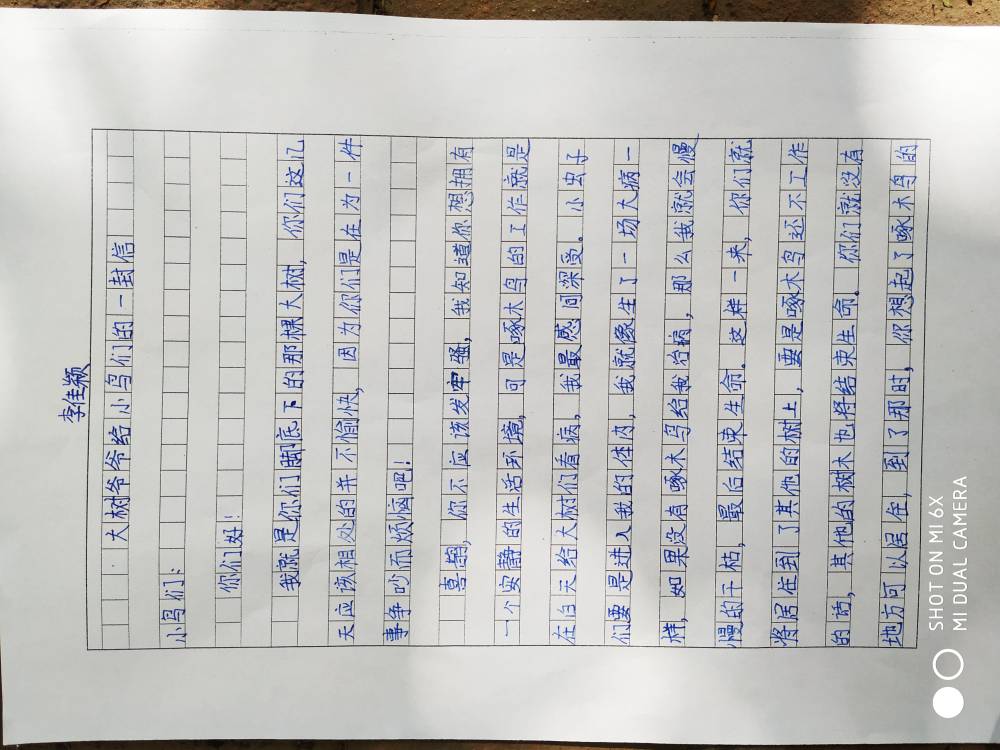 李佳颖
大树爷爷给小鸟们的一封信
小鸟们：
你们好！
我就是你们脚底下的那棵大树，你们这几
天应该相处的并不愉快，因为你们是在为一件
事争吵而烦恼吧！
喜鹊，你不应该发牢骚，我知道你想拥有
一个安静的生活环境，可是啄木鸟的工作就是
在白天给大树们看病，我最感同深受。小虫子
们要是进入我的体内，我就像生了一场大病一
样，如果没有啄木鸟给我治病，那么我就会慢
慢的干枯，最后结束生命。这样一来，你们就
将居住到了其他的树上，要是啄木鸟还不工作
的话，其他的树木也将结束生命。你们就没有
地方可以居住，到了那时，你想起了啄木鸟的
SHOT ON MI 6X
MI DUAL CAMERA